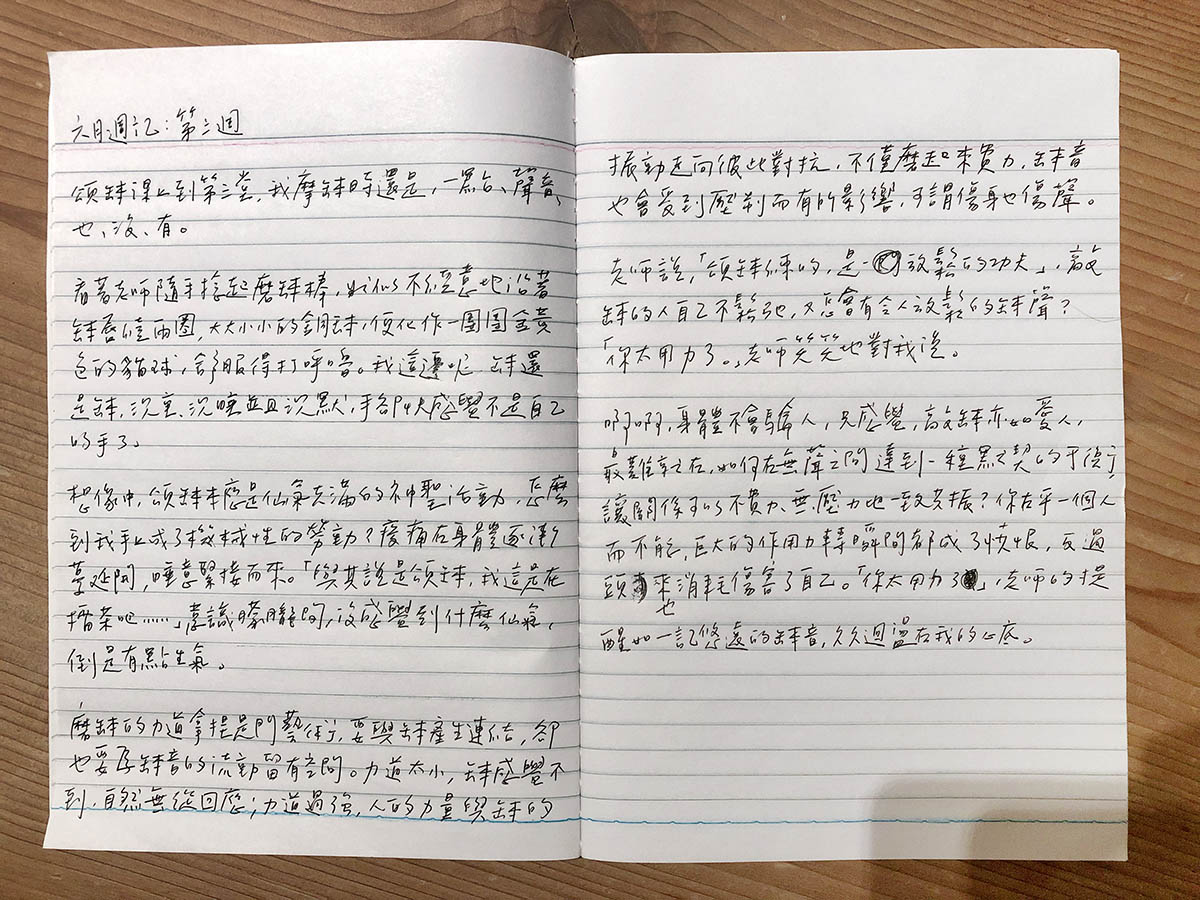 六月週記：第二週
頌缽課上到第三堂，我摩缽時還是，一點、聲音、
也、沒、有。
看著老師隨手捻起磨缽棒，看似不經意地沿著
缽唇哇兩圈，大大小小的銅缽，便化作一團團金黃
色的貓球，舒服得打呼嚕。我這邊呢，缽還
是缽，沉重、沉睡並且沉默，手卻快感覺不是自己
的手了。
想像中，頌缽本應是仙氣充滿的神聖活動，怎麼
到我手上成了機械性的勞動？痠痛在身體逐漸
蔓延開，睡意緊接而來。「與其說是頌缽，我這是在
擂茶吧……」意識矇矓間，沒感覺到什麼仙氣，
倒是有點生氣。
磨缽的力道拿捏是門藝術，要與缽產生連結，卻
也要為缽音的流動留有空間。力道太小，缽感覺不
到，自然無從回應；力道過強，人的力量與缽的
振動走向彼此對抗，不僅磨起來費力，缽音
也會受到壓制而有所影響，可謂傷身也傷聲。
老師說，「頌缽練的，是放鬆的功夫」，敲
缽的人自己不鬆弛，又怎會有令人放鬆的缽聲？
「你太用力了。」老師笑笑地對我說。
啊啊，身體不會騙人，只感覺，敲缽亦如愛人，
最難就在，如何在無聲之間達到一種默契的平衡，
讓關係可以不費力、無壓力地一致共振？你在乎一個人
而不能，巨大的作用力轉瞬間都成了憤恨，反過
頭來消耗也傷害了自己。「你太用力了」，老師的提
醒如一記悠遠的缽音，久久迴盪在我的心底。